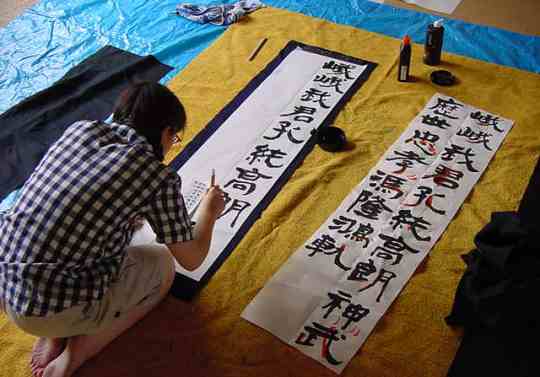 峨峨我君孔純高朗
峨峨我君孔純高朗神武
歷世忠孝馮隆鴻軌